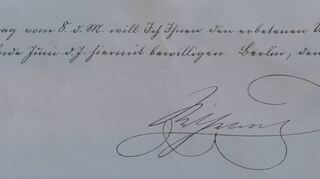 ag vom 8. d. M. will Ich Ihnen den erbetenen
nde Juni d. J. hiermit bewilligen. Berlin, den